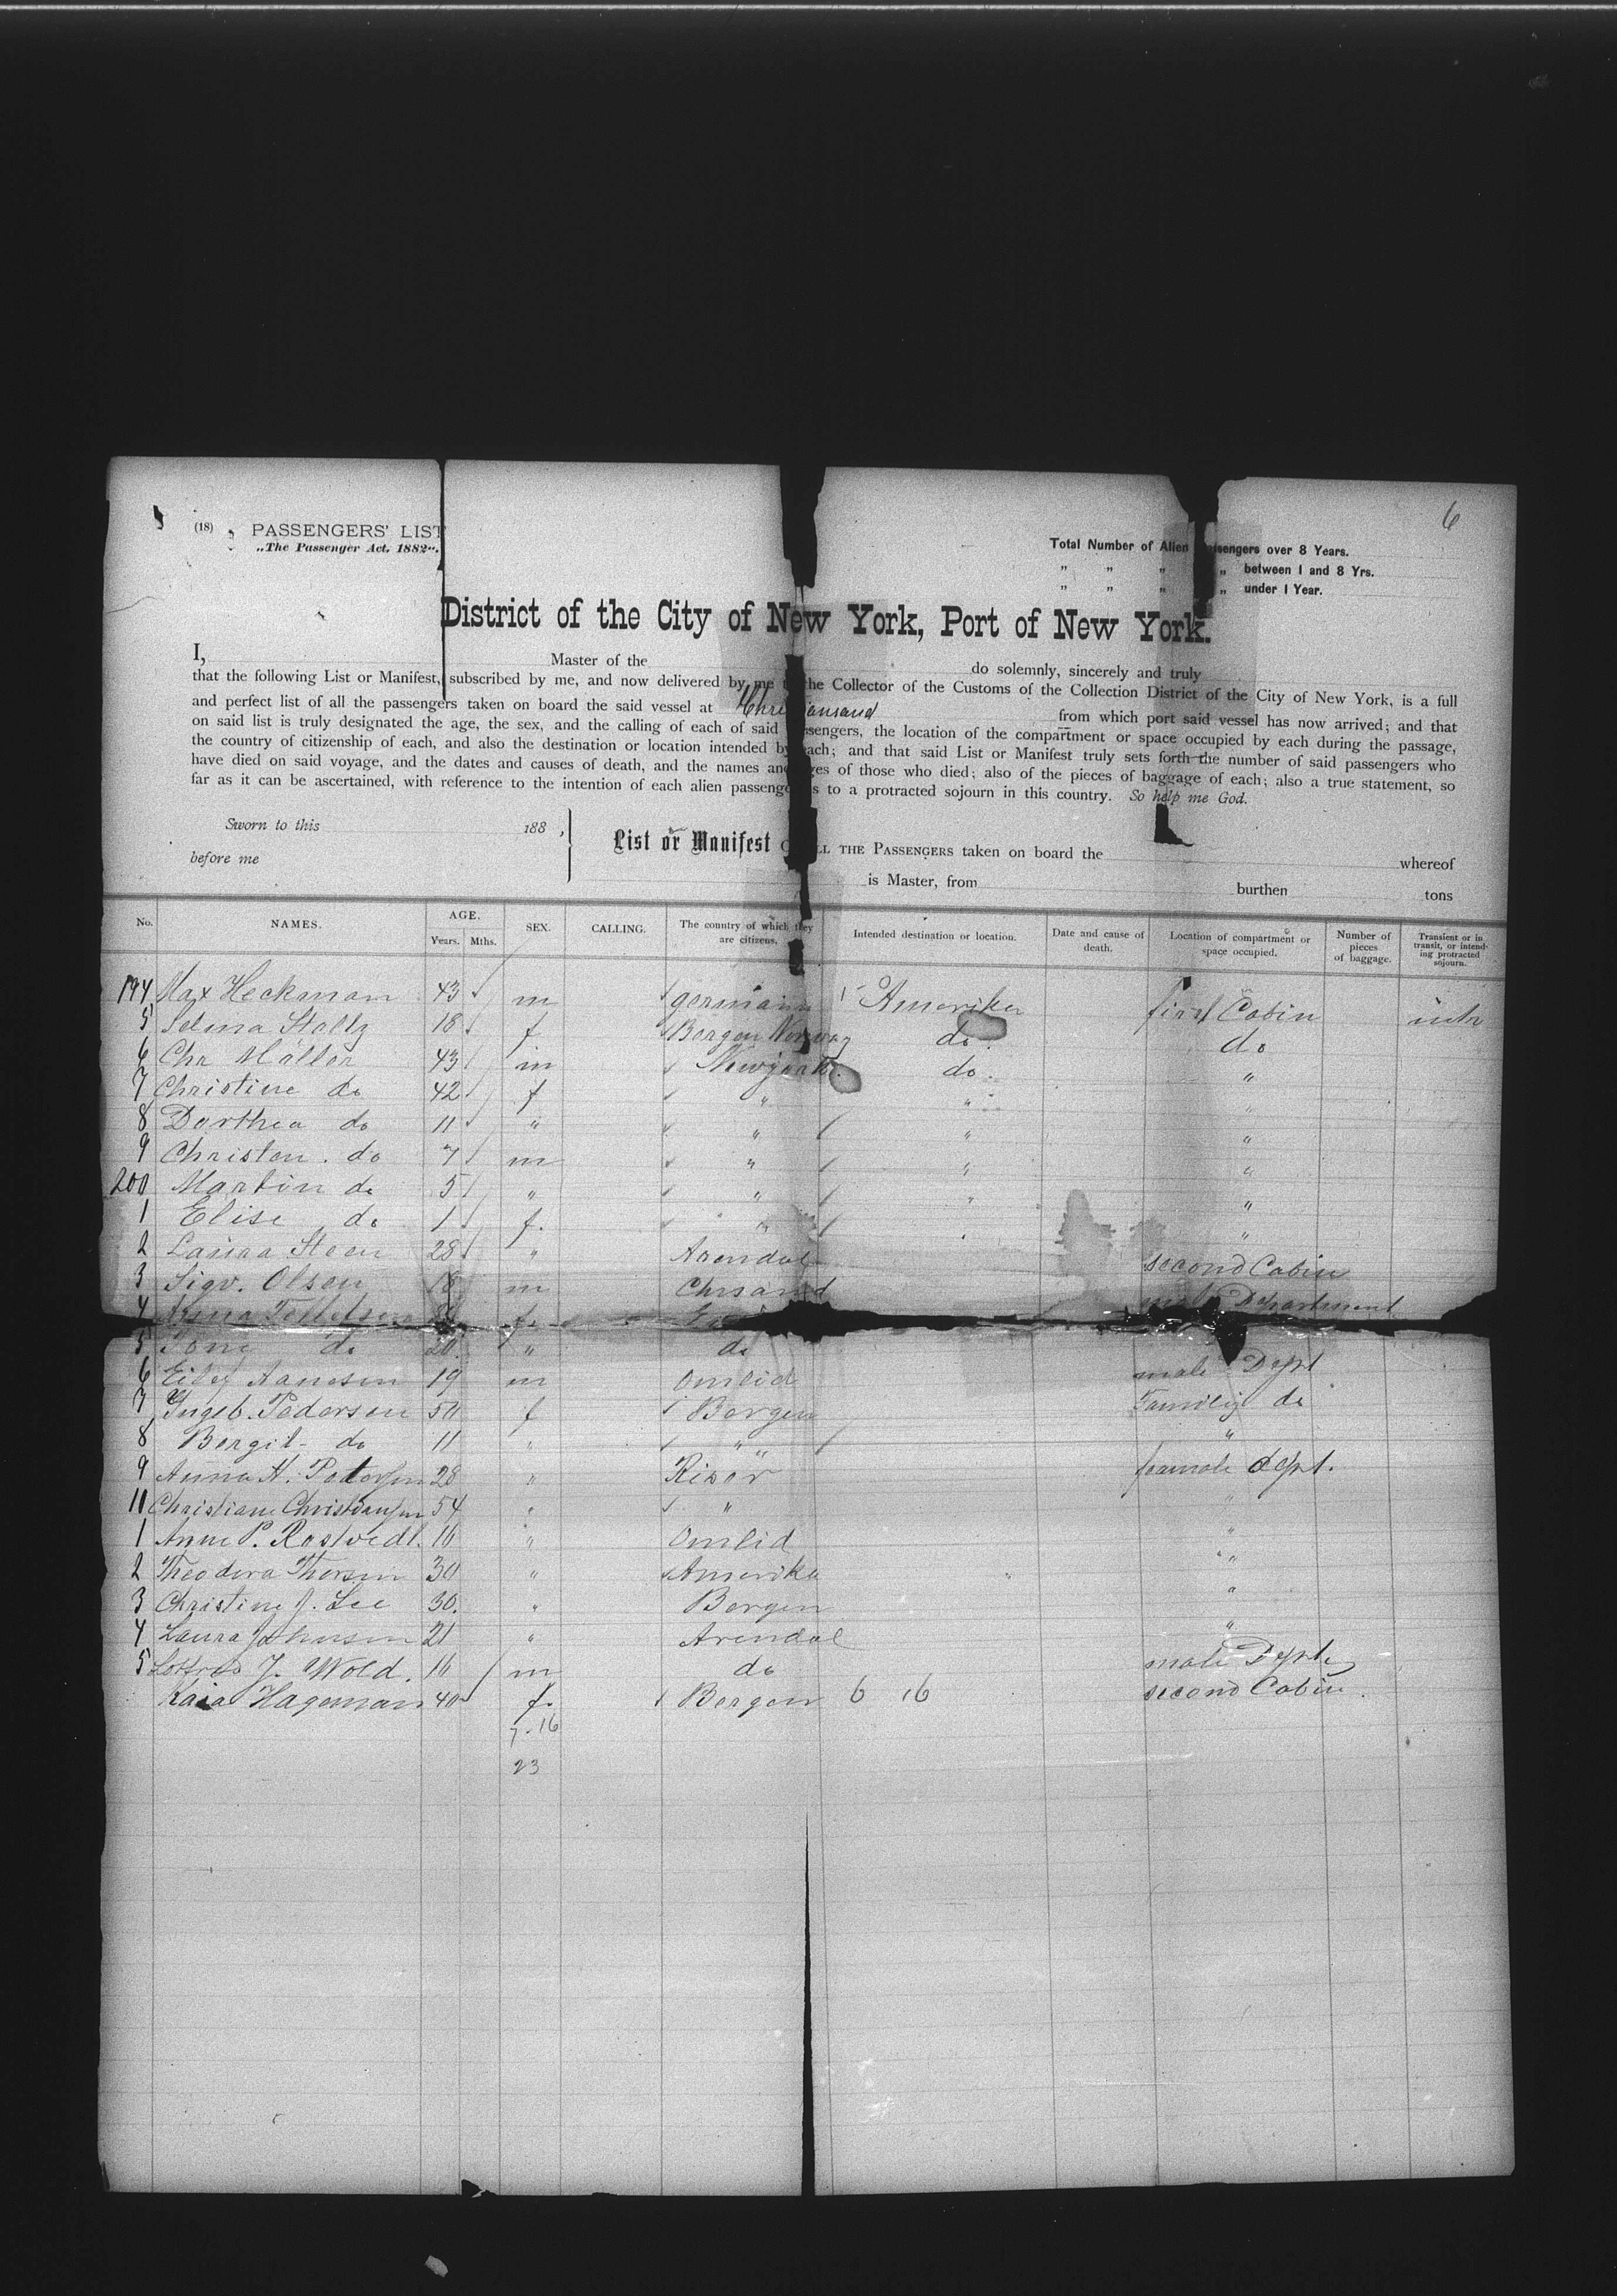 6
(18) PASSENGERS' LIST
„The Passenger Act, 1882".
Total Number of Alien Passengers over 8 Years.
" " " " between 1 and 8 Yrs.
" " " " under 1 Year.
District of the City of New York, Port of New York.
I, Master of the do solemnly, sincerely and truly
that the following List or Manifest, subscribed by me, and now delivered by me to the Collector of the Customs of the Collection District of the City of New York, is a full
and perfect list of all the passengers taken on board the said vessel at Christiansand from which port said vessel has now arrived; and that
on said list is truly designated the age, the sex, and the calling of each of said passengers, the location of the compartment or space occupied by each during the passage,
the country of citizenship of each, and also the destination or location intended by each; and that said List or Manifest truly sets forth the number of said passengers who
have died on said voyage, and the dates and causes of death, and the names and ages of those who died; also of the pieces of baggage of each; also a true statement, so
far as it can be ascertained, with reference to the intention of each alien passenger as to a protracted sojourn in this country. So help me God.
Sworn to this 188 ,
before me
List or Manifest OF ALL THE PASSENGERS taken on board the whereof
is Master, from burthen tons
No. NAMES. AGE. Years. Mths. SEX. CALLING. The country of which they are citizens. Intended destination or location. Date and cause of death. Location of compartment or space occupied. Number of pieces of baggage. Transient or in transit, or intending protracted sojourn.
194 Max Heckman 43 m germany Amerika first Cabin
5 Selma Stoltz 18 f Bergen Norway do do
6 Chr Møller 43 m Newyork do "
7 Christine do 42 f " " "
8 Dorthea do 11 " " " "
9 Christen do 7 m " " "
200 Martin do 5 " " " "
1 Elise do 1 f. " " "
2 Laura Steen 28 " Arendal second Cabin
3 Sigv. Olsen 18 m Chrsand male Department
4 Anna f.
5 do 20 " do
6 Eilef Aanesen 19 m Omlid male Dept
7 Ingeb. Pedersen 50 f Bergen Familiy do
8 Bergit do 11 " " "
9 Anna H. Petersen 28 " Risør female dept.
10 Christiane Christiansen 54 " " "
1 Anne P. Rostvedt 16 " Omlid "
2 Theodora Thorsen 30 " Amerika "
3 Christine J. Lee 30. " Bergen "
4 Laura Johnsen 21 " Arendal "
5 J. Wold. 16 m do male Dept.
Kaia Hageman 40 f. Bergen 6 16 second Cabin.
7-16
23